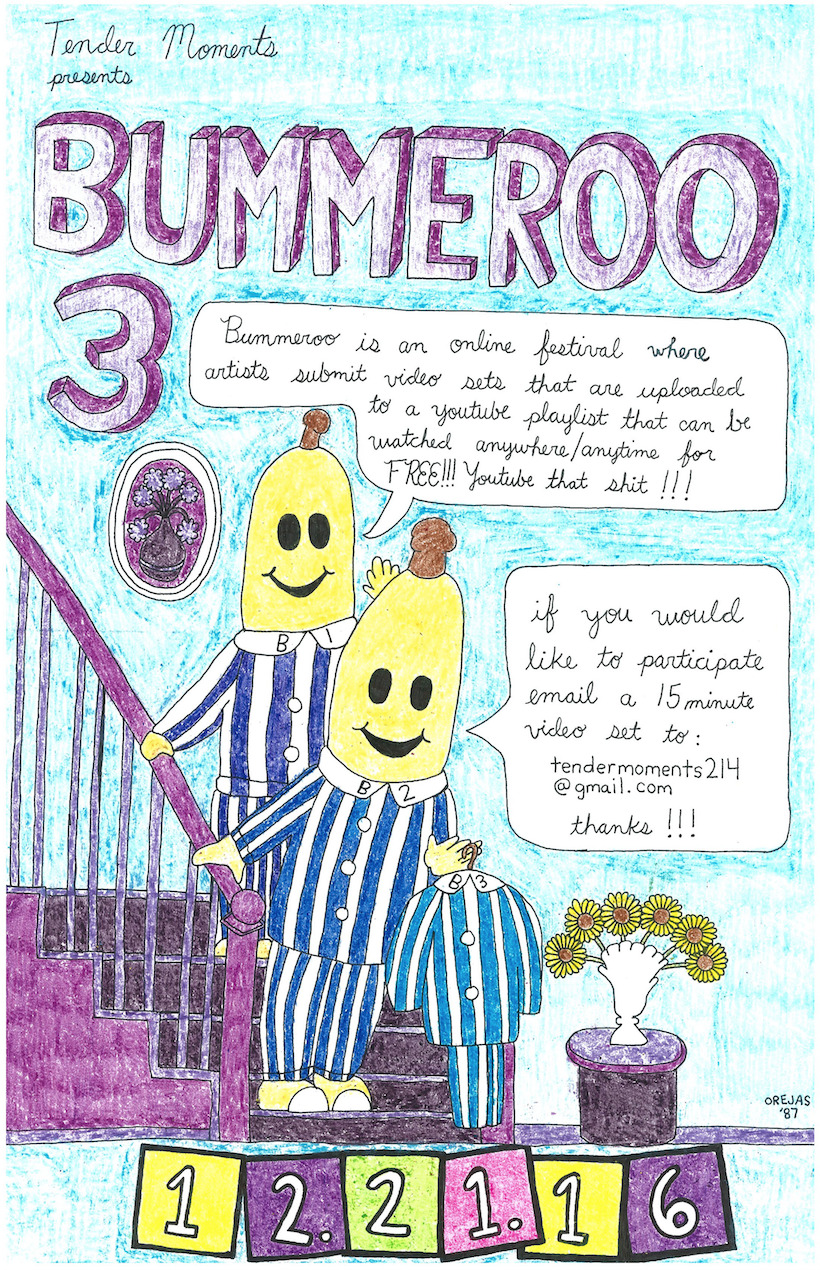 Tender Moments
presents
BUMMEROO
3
Bummeroo is an online festival where
artists submit video sets that are uploaded
to a youtube playlist that can be
watched anywhere/anytime for
FREE!!! Youtube that shit !!!
B 1
if you would
like to participate
email a 15 minute
video set to:
tendermoments214
@gmail.com
thanks !!!
B 2
B 3
OREJAS
'87
12.21.16